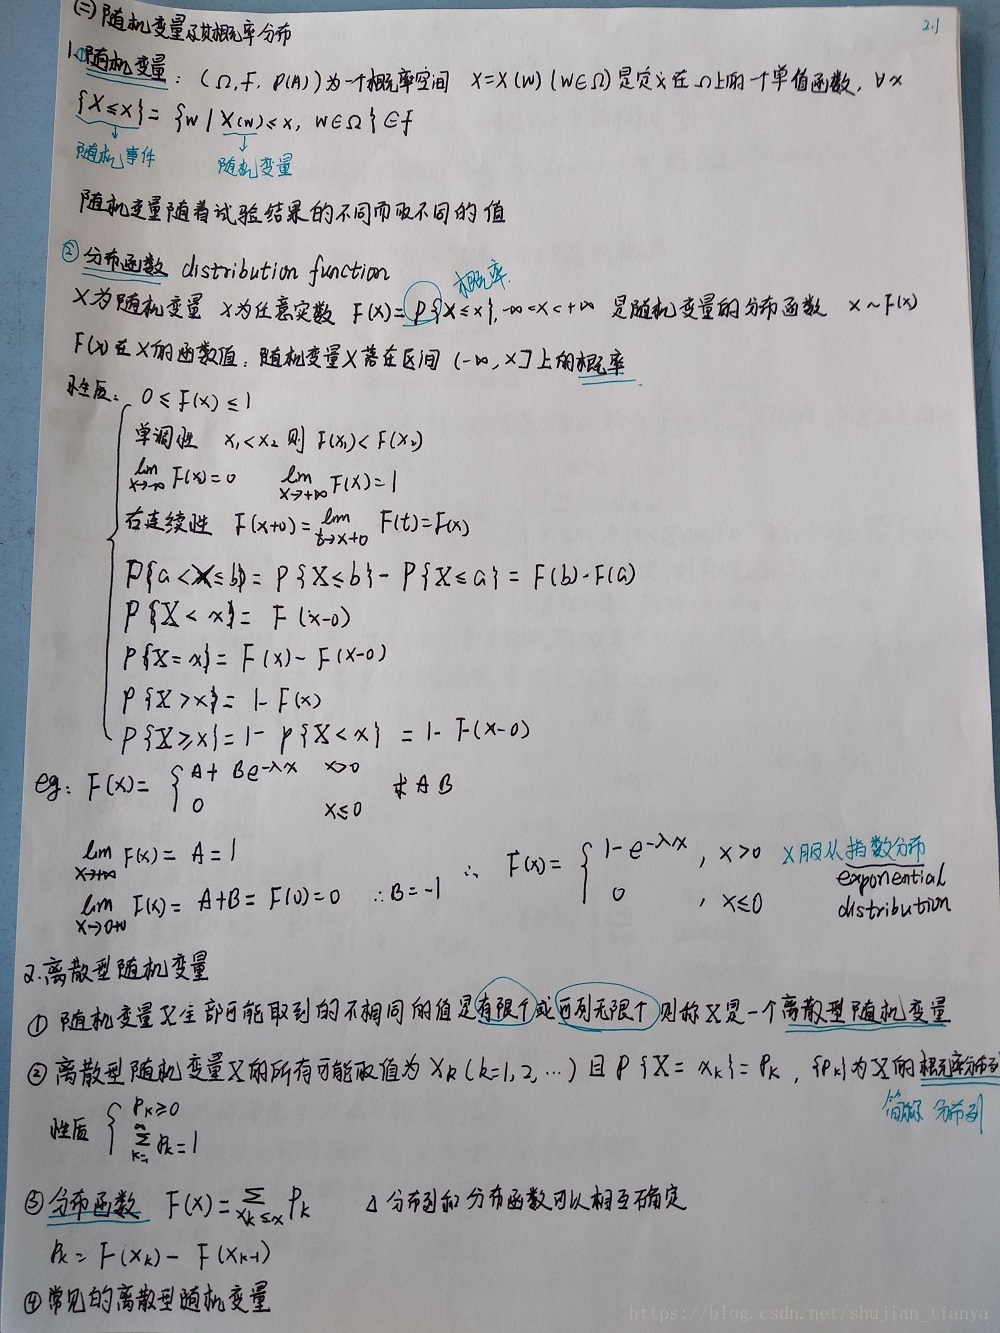 (二) 随机变量及其概率分布
2.1
1.①随机变量：(Ω, F, P(A)) 为一个概率空间 X=X(w) (w∈Ω) 是定义在Ω上的一个单值函数, ∀x
{X≤x}={w | X(w)≤x, w∈Ω}∈f
随机事件 随机变量
随机变量随着试验结果的不同而取不同的值
② 分布函数 distribution function
概率.
X为随机变量 x为任意实数 F(x)=P{X≤x}, -∞<x<+∞ 是随机变量的分布函数 X~F(x)
F(x)在X的函数值：随机变量X落在区间 (-∞, x]上的概率
性质：0≤F(x)≤1
单调性 x₁<x₂ 则 F(x₁)<F(x₂)
lim x→-∞ F(x)=0 lim x→+∞ F(x)=1
右连续性 F(x+0)=lim t→x+0 F(t)=F(x)
P{a<X≤b}=P{X≤b}-P{X≤a}=F(b)-F(a)
P{X<x}=F(x-0)
P{X=x}=F(x)-F(x-0)
P{X>x}=1-F(x)
P{X≥x}=1-P{X<x}=1-F(x-0)
eg: F(x)= { A+Be^{-λx} x>0 求AB
0 x≤0
lim x→+∞ F(x)=A=1
lim x→0+0 F(x)=A+B=F(0)=0 ∴B=-1
∴ F(x)= { 1-e^{-λx}, x>0 X服从指数分布
0, x≤0 exponential
distribution
2.离散型随机变量
① 随机变量X全部可能取到的不相同的值是有限个或可列无限个 则称X是一个离散型随机变量
② 离散型随机变量X的所有可能取值为 x_k (k=1,2,…) 且 P{X=x_k}=P_k, {P_k}为X的概率分布列
简称 分布列
性质 { P_k≥0
∑_{k=1}^{∞} P_k=1
③ 分布函数 F(x)=∑_{x_k≤x} P_k △ 分布列和分布函数可以相互确定
P_k=F(x_k)-F(x_{k-1})
④ 常见的离散型随机变量
https://blog.csdn.net/shujian_tianya